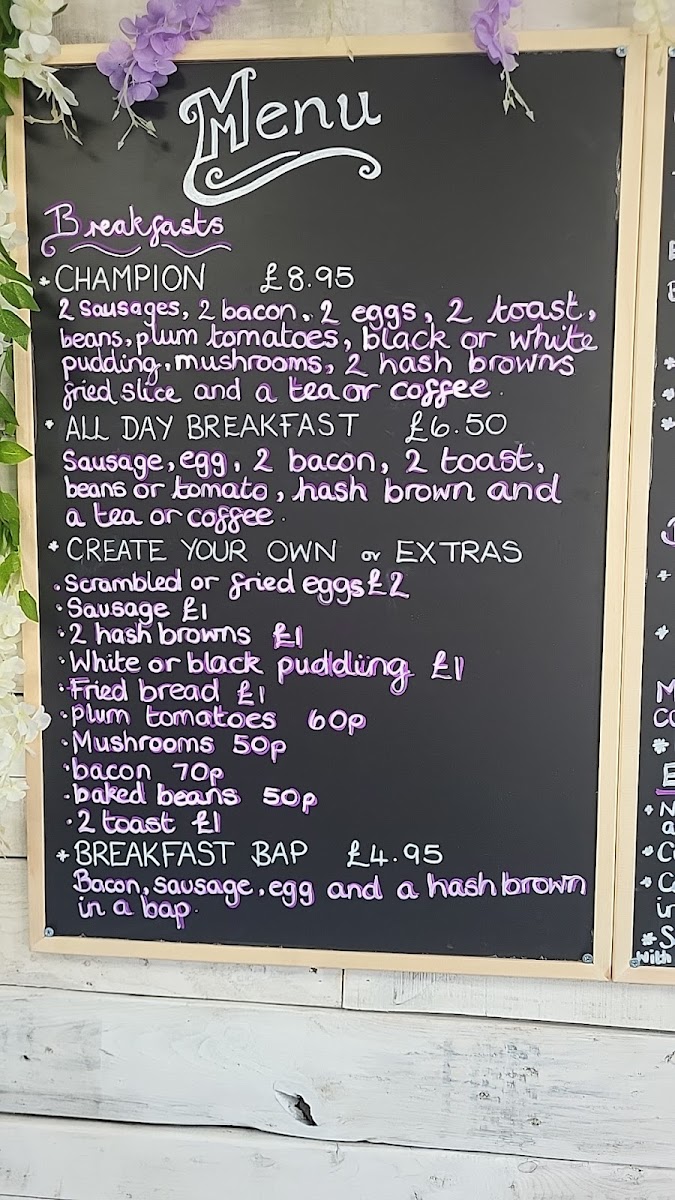 Menu
Breakfasts
* CHAMPION £8.95
2 sausages, 2 bacon, 2 eggs, 2 toast,
beans, plum tomatoes, black or white
pudding, mushrooms, 2 hash browns
fried slice and a tea or coffee.
* ALL DAY BREAKFAST £6.50
Sausage, egg, 2 bacon, 2 toast,
beans or tomato, hash brown and
a tea or coffee.
* CREATE YOUR OWN or EXTRAS
• Scrambled or fried eggs £2
• Sausage £1
• 2 hash browns £1
• White or black pudding £1
• Fried bread £1
• plum tomatoes 60p
• Mushrooms 50p
• bacon 70p
• baked beans 50p
• 2 toast £1
* BREAKFAST BAP £4.95
Bacon, sausage, egg and a hash brown
in a bap.
with